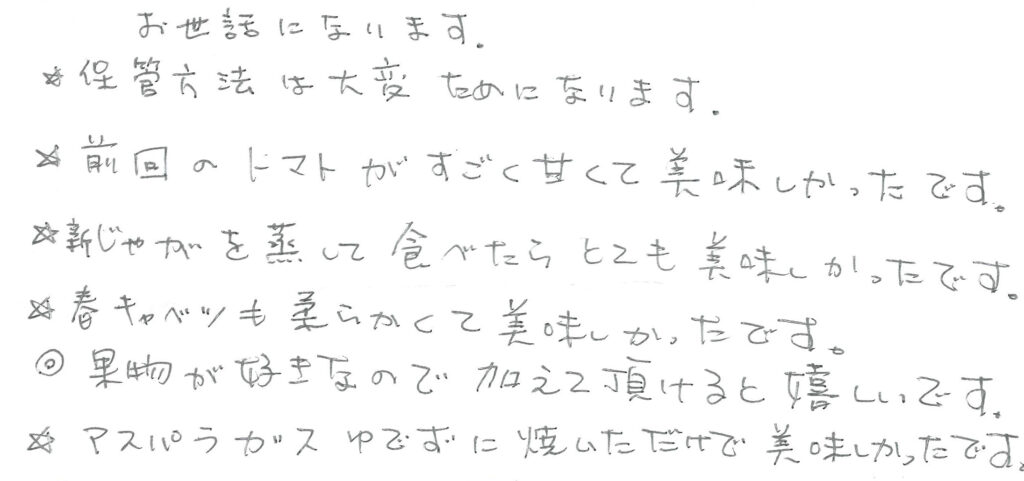 お世話になります。
☆保管方法は大変ためになります。
☆前回のトマトがすごく甘くて美味しかったです。
☆新じゃがを蒸して食べたらとても美味しかったです。
☆春キャベツも柔らかくて美味しかったです。
◎果物が好きなので加えて頂けると嬉しいです。
☆アスパラガスゆでずに焼いただけで美味しかったです。